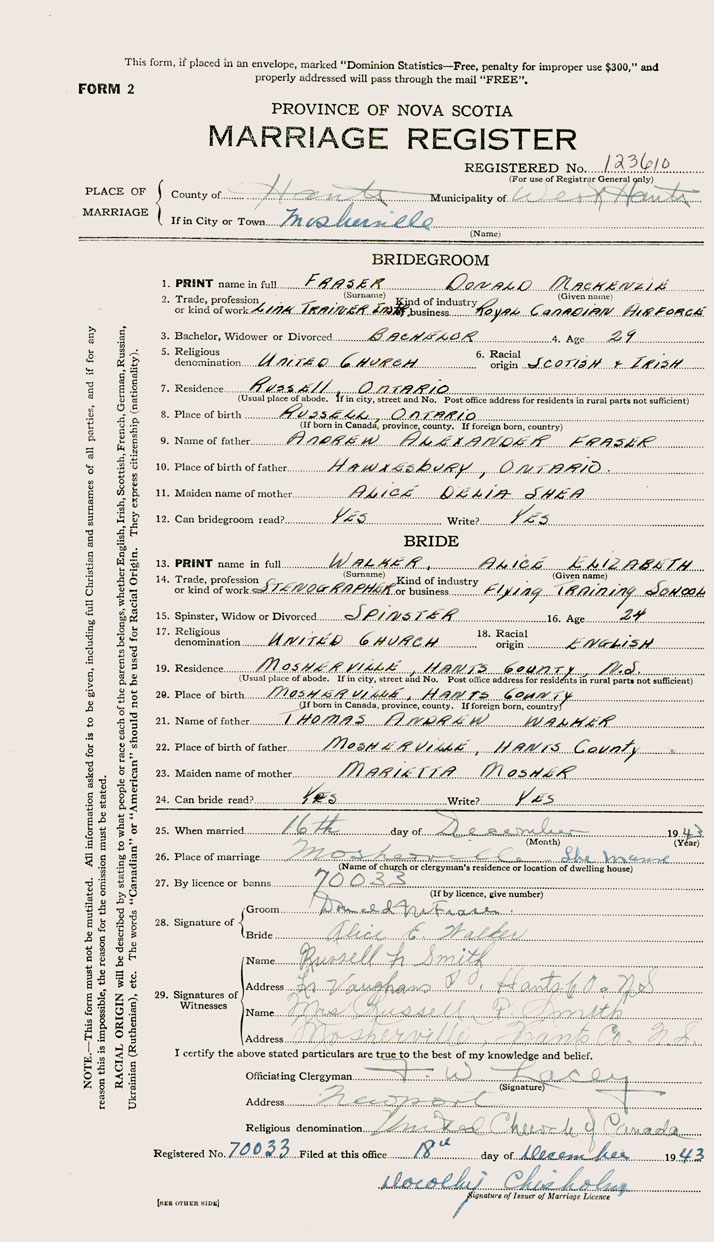 This form, if placed in an envelope, marked "Dominion Statistics—Free, penalty for improper use $300," and
properly addressed will pass through the mail "FREE".
FORM 2
PROVINCE OF NOVA SCOTIA
MARRIAGE REGISTER
REGISTERED No. 123610
(For use of Registrar General only)
PLACE OF MARRIAGE
County of Hants Municipality of West Hants
If in City or Town Mosherville
(Name)
BRIDEGROOM
1. PRINT name in full FRASER DONALD MACKENZIE
(Surname) (Given name)
2. Trade, profession or kind of work LINK TRAINER INSTR. Kind of industry or business ROYAL CANADIAN AIRFORCE
3. Bachelor, Widower or Divorced BACHELOR 4. Age 29
5. Religious denomination UNITED CHURCH 6. Racial origin SCOTISH & IRISH
7. Residence RUSSELL, ONTARIO
(Usual place of abode. If in city, street and No. Post office address for residents in rural parts not sufficient)
8. Place of birth RUSSELL, ONTARIO
(If born in Canada, province, county. If foreign born, country)
9. Name of father ANDREW ALEXANDER FRASER
10. Place of birth of father HAWKESBURY, ONTARIO.
11. Maiden name of mother ALICE DELIA SHEA
12. Can bridegroom read? YES Write? YES
BRIDE
13. PRINT name in full WALKER, ALICE ELIZABETH
(Surname) (Given name)
14. Trade, profession or kind of work STENOGRAPHER Kind of industry or business Flying TRAINING SCHOOL
15. Spinster, Widow or Divorced SPINSTER 16. Age 24
17. Religious denomination UNITED CHURCH 18. Racial origin ENGLISH
19. Residence MOSHERVILLE, HANTS COUNTY, N.S.
(Usual place of abode. If in city, street and No. Post office address for residents in rural parts not sufficient)
20. Place of birth MOSHERVILLE, HANTS COUNTY
(If born in Canada, province, county. If foreign born, country)
21. Name of father THOMAS ANDREW WALKER
22. Place of birth of father MOSHERVILLE, HANTS County
23. Maiden name of mother MARIETTA MOSHER
24. Can bride read? YES Write? YES
25. When married 16th day of December 1943
(Month) (Year)
26. Place of marriage Mosherville The Manse
(Name of church or clergyman's residence or location of dwelling house)
27. By licence or banns 70033
(If by licence, give number)
28. Signature of
Groom Donald M Fraser.
Bride Alice E. Walker
29. Signatures of Witnesses
Name Russell Smith
Address Vaughans Hants Co. N S
Name Mrs Russell F. Smith
Address Mosherville, Hants Co. N.S.
I certify the above stated particulars are true to the best of my knowledge and belief.
Officiating Clergyman W Lacey
(Signature)
Address Newport
Religious denomination United Church of Canada
Registered No. 70033 Filed at this office 18th day of December 1943
Dorothy Chisholm
Signature of Issuer of Marriage Licence
[SEE OTHER SIDE]
NOTE.—This form must not be mutilated. All information asked for is to be given, including full Christian and surnames of all parties, and if for any
reason this is impossible, the reason for the omission must be stated.
RACIAL ORIGIN will be described by stating to what people or race each of the parents belongs, whether English, Irish, Scottish, French, German, Russian,
Ukrainian (Ruthenian), etc. The words "Canadian" or "American" should not be used for Racial Origin. They express citizenship (nationality).